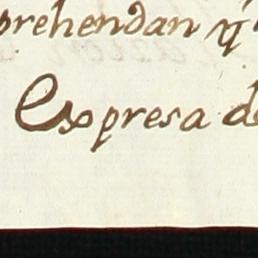 prehendan q̃
Expresa de